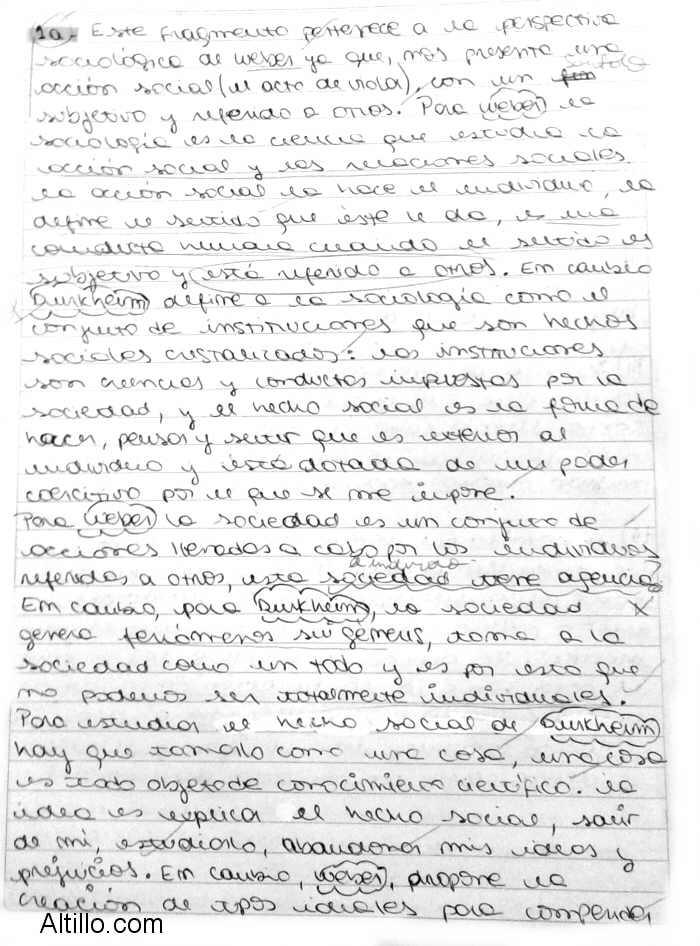 1a. Este fragmento pertenece a la perspectiva
sociológica de Weber ya que, nos presenta una
acción social (el acto de viola), con un fin sentido
subjetivo y referido a otros. Para Weber la
sociología es la ciencia que estudia la
acción social y las relaciones sociales.
La acción social la hace el individuo, la
define el sentido que éste le da, es una
conducta humana cuando el sentido es
subjetivo y está referido a otros. En cambio
Durkheim define a la sociología como el
conjunto de instituciones que son hechos
sociales cristalizados: las instituciones
son creencias y conductas impuestas por la
sociedad, y el hecho social es la forma de
hacer, pensar y sentir que es exterior al
individuo y está dotada de un poder
coercitivo por el que se me impone.
Para Weber la sociedad es un conjunto de
acciones llevadas a cabo por los individuos
referidas a otros, esta sociedad tiene agencia?
el individuo
En cambio, para Durkheim, la sociedad X
genera fenómenos sui generis, toma a la
sociedad como un todo y es por esto que
no podemos ser totalmente individuales.
Para estudiar el hecho social de Durkheim
hay que tomarlo como una cosa, una cosa
es todo objeto de conocimiento científico. La
idea es explicar el hecho social, salir
de mi, estudiarlo, abandonar mis ideas y
prejuicios. En cambio, Weber, propone la
creación de tipos ideales para comprender
Altillo.com